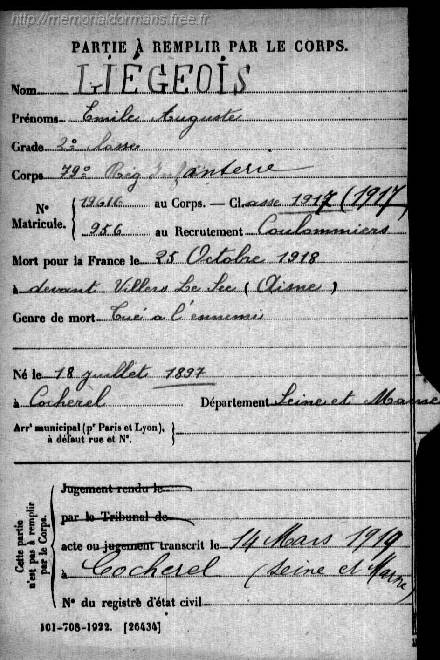 http://memorialdormans.free.fr
PARTIE À REMPLIR PAR LE CORPS.
Nom LIÉGEOIS
Prénoms Emile Auguste
Grade 2e classe
Corps 79e Rég Infanterie
N° Matricule. { 19616 au Corps. — Classe 1917 (1917)
956 au Recrutement Coulommiers
Mort pour la France le 25 Octobre 1918
à devant Villers Le Sec (Aisne)
Genre de mort Tué à l'ennemi
Né le 18 juillet 1897
à Cocherel Département Seine et Marne
Arrt municipal (pr Paris et Lyon),
à défaut rue et N°.
Cette partie n'est pas à remplir par le Corps.
Jugement rendu le
par le Tribunal de
acte ou jugement transcrit le 14 Mars 1919
à Cocherel (Seine et Marne)
N° du registre d'état civil
101-708-1922. [26434]